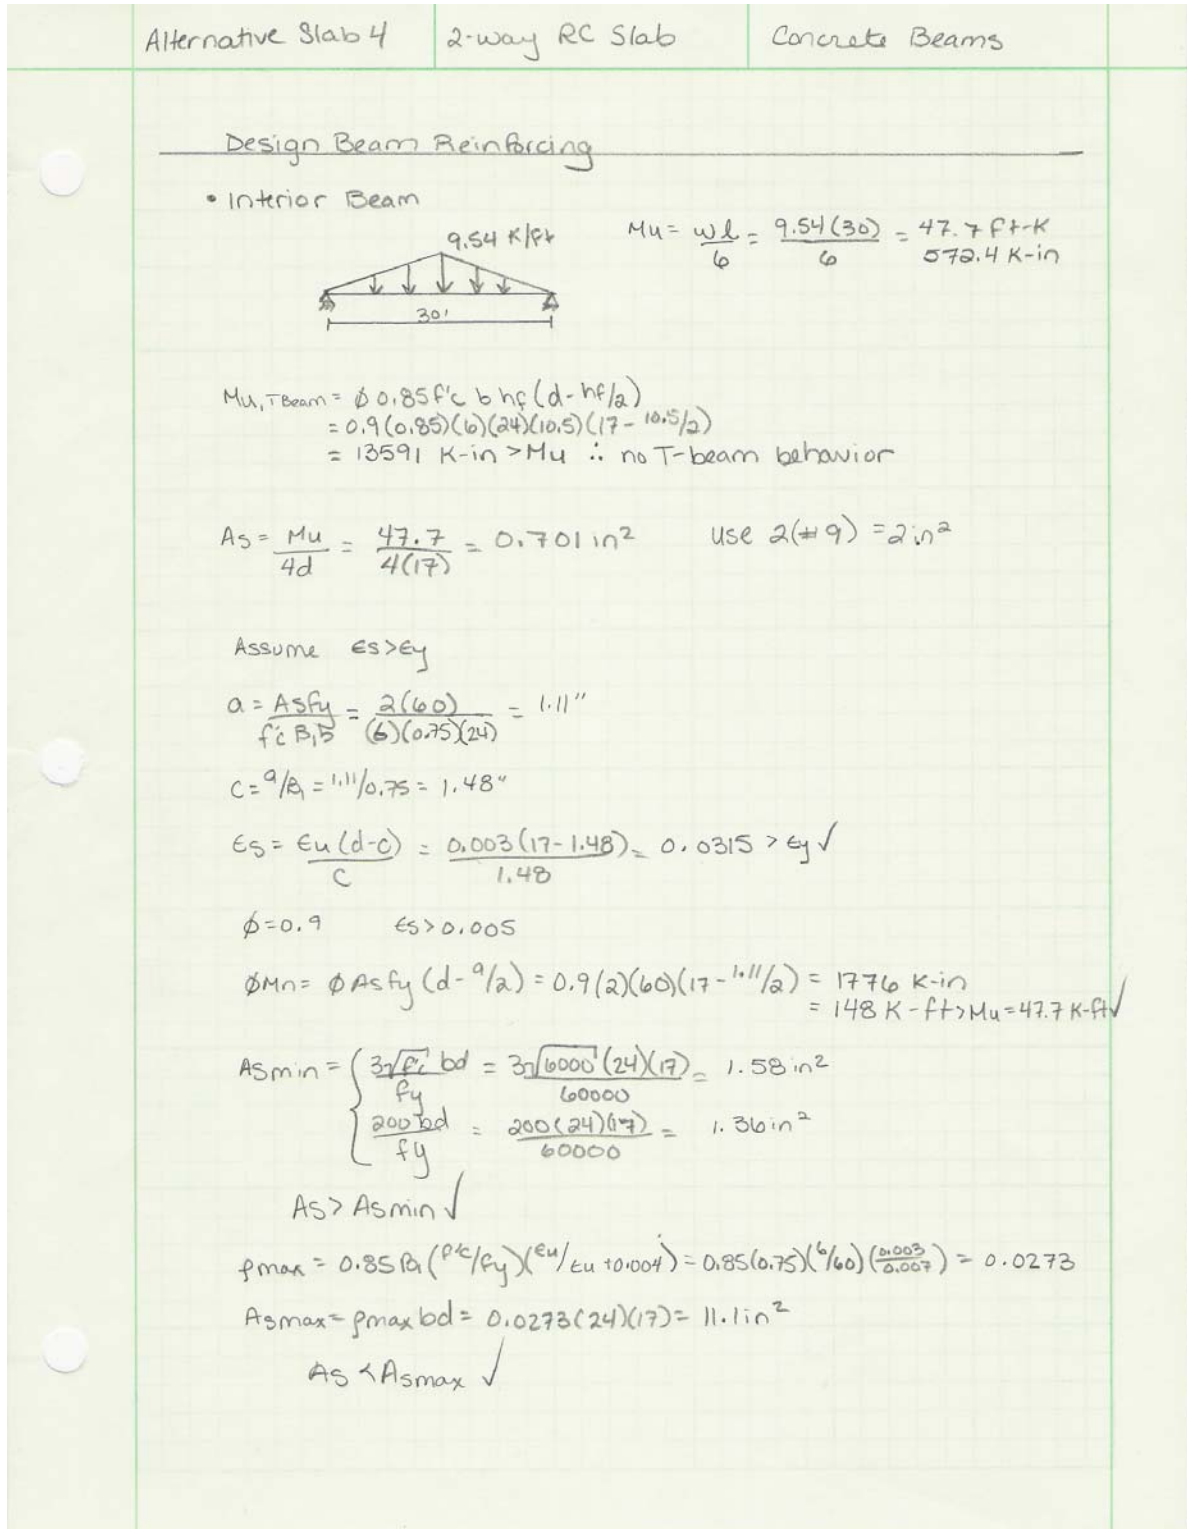 Alternative Slab 4 2-way RC Slab Concrete Beams
Design Beam Reinforcing
• Interior Beam
9.54 K/ft
30'
Mu = wl/6 = 9.54(30)/6 = 47.7 ft-K
572.4 K-in
Mu, T Beam = ϕ 0.85 f'c b hf (d - hf/2)
= 0.9(0.85)(6)(24)(10.5)(17 - 10.5/2)
= 13591 K-in > Mu ∴ no T-beam behavior
As = Mu/4d = 47.7/4(17) = 0.701 in² use 2(#9) = 2in²
Assume ϵs > ϵy
a = Asfy/f'c β₁b = 2(60)/(6)(0.75)(24) = 1.11"
c = a/β₁ = 1.11/0.75 = 1.48"
ϵs = ϵu(d-c)/c = 0.003(17-1.48)/1.48 = 0.0315 > ϵy ✓
ϕ = 0.9 ϵs > 0.005
ϕMn = ϕ Asfy (d - a/2) = 0.9(2)(60)(17 - 1.11/2) = 1776 K-in
= 148 K-ft > Mu = 47.7 K-ft ✓
Asmin = { 3√f'c bd/fy = 3√6000 (24)(17)/60000 = 1.58 in²
200bd/fy = 200(24)(17)/60000 = 1.36 in²
As > Asmin ✓
ρmax = 0.85 β₁ (f'c/fy)(ϵu/ϵu+0.004) = 0.85(0.75)(6/60)(0.003/0.007) = 0.0273
Asmax = ρmax bd = 0.0273(24)(17) = 11.1in²
As < Asmax ✓